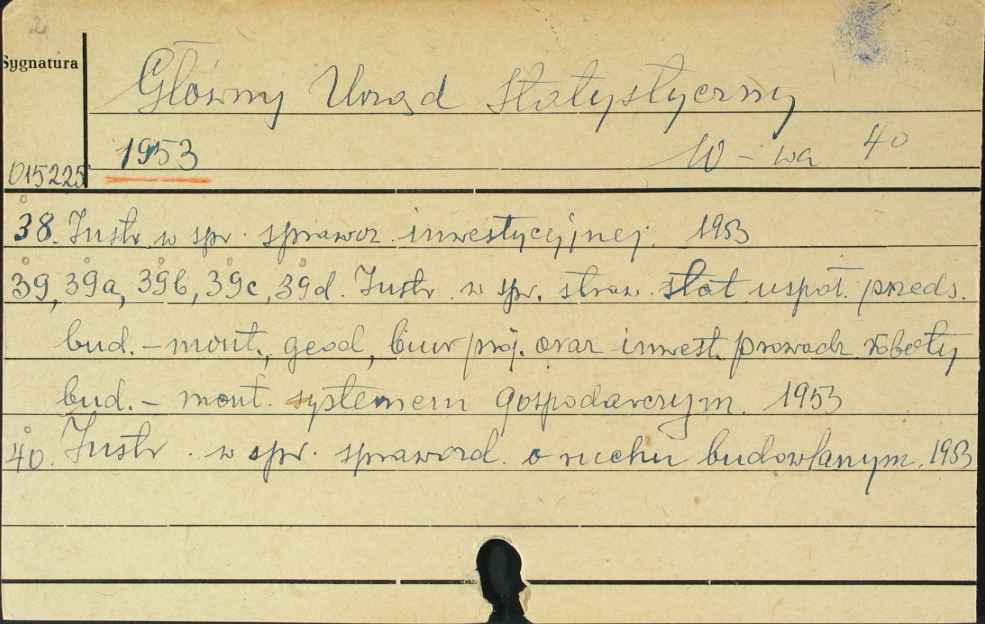 2
Sygnatura
Główny Urząd Statystyczny
1953 W-wa 40
015225
38. Instr. w spr. sprawoz. inwestycyjnej. 1953
39, 39a, 39b, 39c, 39d. Instr. w spr. spraw. stat. uspoł. przeds.
bud.-mont., geod., biur proj. oraz inwest. prowadz. roboty
bud.- mont. systemem gospodarczym. 1953
40. Instr. w spr. sprawozd. o ruchu budowlanym. 1953